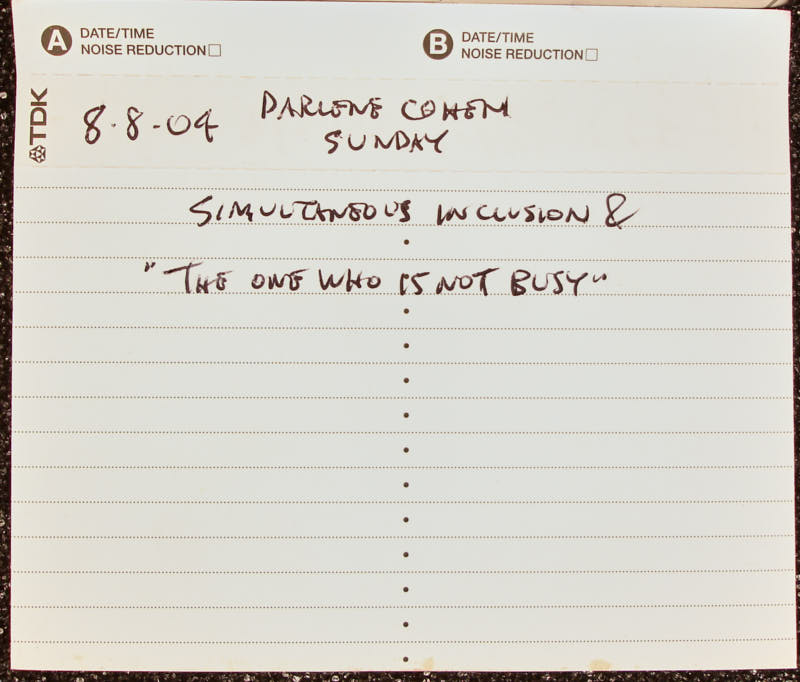 A DATE/TIME
NOISE REDUCTION
B DATE/TIME
NOISE REDUCTION
TDK
8.8-04
DARLENE COHEN
SUNDAY
SIMULTANEOUS INCLUSION &
"THE ONE WHO IS NOT BUSY"